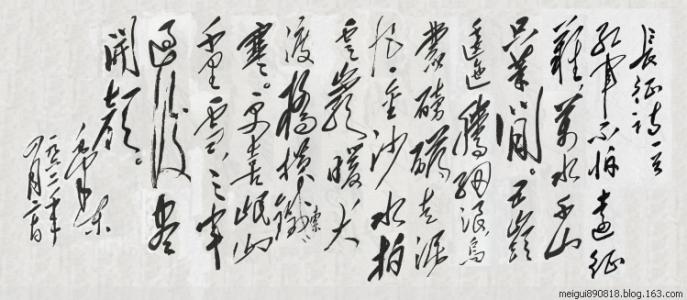 長征詩一首
紅軍不怕遠征
難,萬水千山
只等閒。五嶺
逶迤騰細浪,烏
蒙磅礴走泥
丸。金沙水拍
雲崖暖,大
渡橋横鐵索
寒。更喜岷山
千里雪,三軍
過後盡
開顔。
毛澤東
一九六二年
meigui890818.blog.163.com